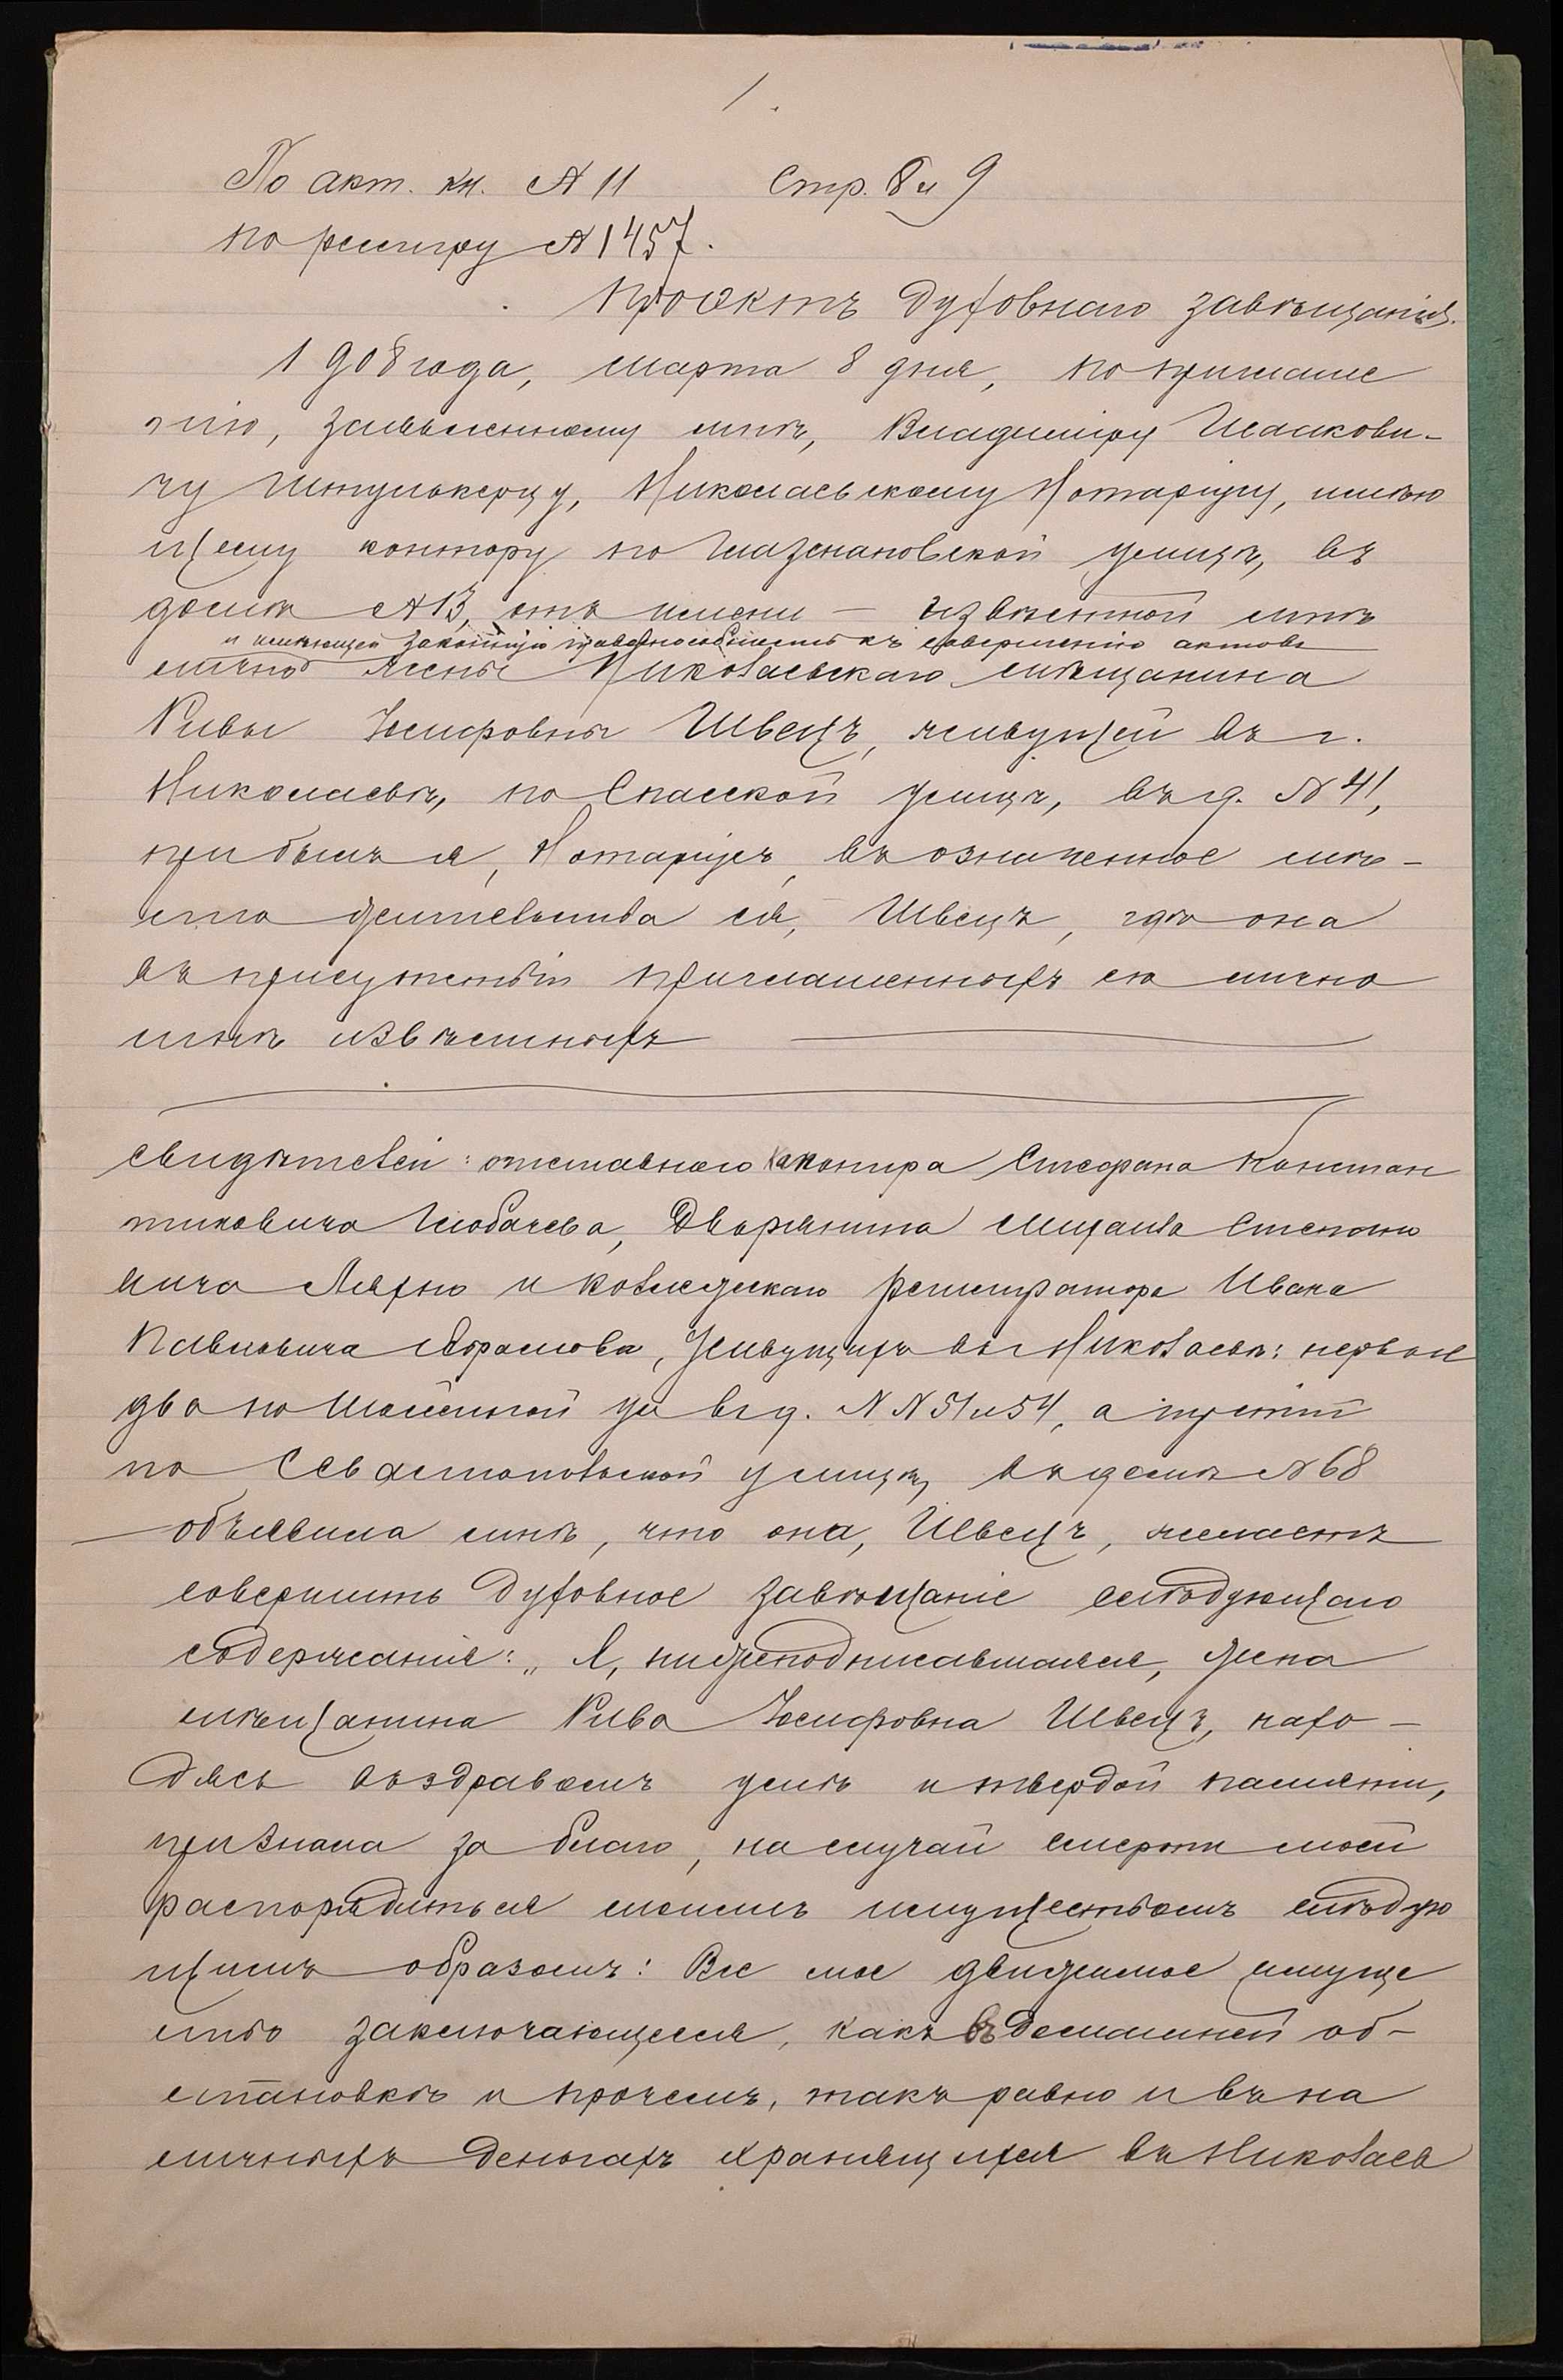 1.
По акт. кн. № 11 Стр. 8 и 9
по реестру № 1457.
Проектъ Духовнаго завѣщанія.
1908 года, марта 8 дня, по приглаше
нію, заявленному мнѣ, Владиміру Исаакови-
чу Штулькерцу, Николаевскому Нотаріусу, имѣю
щему контору по Глазенаповской улицѣ, въ
домѣ № 13, отъ имени — извѣстной мнѣ
и имѣющей законную правоспособность къ совершенію актовъ
лично жены Николаевскаго мѣщанина
Ривы Іосифовны Швецъ, живущей въ г.
Николаевѣ, по Спасской улицѣ, въ д. № 41,
прибылъ я, Нотаріусъ, въ означенное мѣ-
сто жительства ея, Швецъ, гдѣ она
въ присутствіи приглашенныхъ ею лично
мнѣ извѣстныхъ
свидѣтелей: отставного Стефана Констан
тиновича Дворянина Михаила Степано
вича Ляхно и коллежскаго регистратора Ивана
Павловича Абрамова, живущихъ въ г Николаевѣ: первые
два по ул въ д. N N 51 и 54, а третій
по Севастопольской улицѣ, въ домѣ № 68
объявила мнѣ, что она, Швецъ, желаетъ
совершить Духовное завѣщаніе слѣдующаго
содержанія: „Я, нижеподписавшаяся, жена
мѣщанина Рива Іосифовна Швецъ, нахо-
дясь въ здравомъ умѣ и твердой памяти,
признала за благо, на случай смерти моей
распорядиться моимъ имуществомъ слѣдую
щимъ образомъ: Все мое движимое имуще
ство заключающееся, какъ въ домашней об-
становкѣ и прочемъ, такъ равно и въ на
личныхъ деньгахъ хранящихся въ Николаев